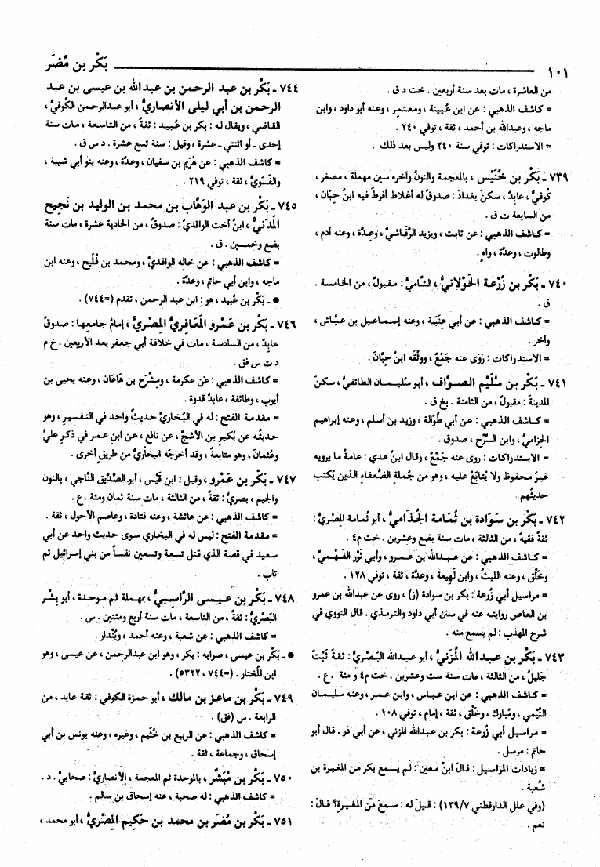 ١٠١
بَكْر بن مُضَر
من العاشرة ، مات بعد سنة أربعين . خت د ق .
= كاشف الذهبي : عن ابن عُيينة ، ومعتمر ، وعنه أبو داود ، وابن
ماجه ، وعبدالله بن أحمد ، ثقة ، توفي ٢٤٠ .
= الاستدراكات : توفي سنة ٢٤٠ وليس بعد ذلك .
٧٣٩ ـ بَكْر بن خُنَيْس ، بالمعجمة والنون وآخره سين مهملة ، مصغر ،
كُوفيٌّ ، عابدٌ ، سكنَ بغدادَ : صدوقٌ له أغلاط أفرط فيه ابنُ حِبَّان ،
من السابعة ت ق .
= كاشف الذهبي : عن ثابت ، ويزيد الرَّقاشي ، وعِدَّة ، وعنه آدم ،
وطالوت ، وعدَّة ، واهٍ .
٧٤٠ ـ بَكْر بن زُرْعة الخَوْلانيُّ ، الشَّاميُّ : مقبولٌ ، من الخامسة .
ق .
= كاشف الذهبي : عن أبي عِنَبة ، وعنه إسماعيل بن عيَّاش ،
وآخر .
= الاستدراكات : روى عنه جَمْعٌ ، ووثَّقه ابنُ حِبَّان .
٧٤١ ـ بَكْر بن سُلَيْم الصوَّاف ، أبو سُليمان الطائفيُّ ، سكنَ
المدينة : مقبولٌ ، من الثامنة . بخ ق .
= كاشف الذهبي : عن أبي طُوَالة ، وزيد بن أسلم ، وعنه إبراهيم
الحِزاميُّ ، وابن السَّرْح ، صدوق .
= الاستدراكات : روى عنه جَمْعٌ ، وقال ابنُ عدي : عامةُ ما يرويه
غيرُ محفوظ ولا يُتابَعُ عليه ، وهو من جُملة الضعفاء الذين يُكتب
حديثُهم .
٧٤٢ ـ بَكْر بن سَوَادة بن ثُمامة الجُذَاميُّ ، أبو ثُمامة المِصْريُّ :
ثقةٌ فقيهٌ ، من الثالثة ، مات سنة بضع وعشرين . خت م٤ .
= كاشف الذهبي : عن عبدالله بن عمرو ، وأبي ثَوْر الفَهْمِيِّ ،
وخَلْق ، وعنه الليثُ ، وابن لَهِيعة ، وعدَّة ، ثقة ، توفي ١٢٨ .
= مراسيل أبي زُرعة : بكر بن سوادة (ز) ، روى عن عبدالله بن عمرو
بن العاص روايته عنه في سنن أبي داود والترمذي . قال النووي في
شرح المهذب : لم يسمع منه .
٧٤٣ ـ بَكْر بن عبدالله المُزَنيُّ ، أبو عبدالله البَصْريُّ : ثقةٌ ثَبْتٌ
جَليلٌ ، من الثالثة ، مات سنة ست وعشرين . خت م٤ و مئة . ع .
= كاشف الذهبي : عن ابن عباس ، وابن عمر ، وعنه سليمان
التَّيْمي ، ومُبارك ، وخَلْق ، ثقة ، إمام ، توفي ١٠٨ .
= مراسيل أبي زُرعة : بكر بن عبدالله المُزَني ، عن أبي ذر . قال أبو
حاتم : مرسل .
= زيادات المراسيل : قالَ ابنُ معين : لم يسمع بكر من المغيرة بن
شعبة .
(وفي علل الدارقطني ١٣٩/٧) : قيلَ له : سمعَ من المغيرةِ؟ قالَ :
نعم .
٧٤٤ ـ بَكْر بن عبد الرحمن بن عبدالله بن عيسى بن عبد
الرحمن بن أبي ليلى الأنصاريُّ ، أبو عبدالرحمن الكُوفيُّ ،
القاضي ، ويقال له : بكر بن عُبيد : ثقةٌ ، من التاسعة ، مات سنة
إحدى ـ أو اثنتي ـ عشرة ، وقيل : سنة تسع عشرة . د س ق .
= كاشف الذهبي : عن هَرِم بن سفيان ، وعدَّة ، وعنه بنو أبي شيبة ،
والفَسَويُّ ، ثقة ، توفي ٢١٩ .
٧٤٥ ـ بَكْر بن عبد الوهَّاب بن محمد بن الوليد بن نَجِيح
المدنيُّ ، ابنُ أخت الواقديُّ : صدوقٌ ، من الحادية عشرة ، مات سنة
بضع وخمسين . ق .
= كاشف الذهبي : عن خالِه الواقديِّ ، ومحمد بن فُلَيح ، وعنه ابن
ماجه ، وابن أبي حاتم ، وعدَّة .
• ـ بَكْر بن عُبيد ، هو : ابن عبد الرحمن ، تقدم (=٧٤٤) .
٧٤٦ ـ بَكْر بن عَمْرو المَعَافِريُّ المِصْريُّ ، إمامُ جامعها : صدوقٌ
عابدٌ ، من السادسة ، مات في خلافة أبي جعفر بعد الأربعين . خ م
د ت س فق .
= كاشف الذهبي : عن عكرمة ، ومِشْرَح بن هَاعَان ، وعنه يحيى بن
أيوب ، وطائفة ، عابدٌ قدوة .
= مقدمة الفتح : له في البُخاري حديثٌ واحد في التفسير ، وهو
حديثُه عن بُكَير بن الأشجِّ ، عن نافع ، عن ابن عمر في ذكر عليٍّ
وعُثمانَ ، وهو متابعة ، وقد أخرجَه البخاريُّ من طريقٍ أخرى .
٧٤٧ ـ بَكْر بن عَمْرو ، وقيل : ابن قَيس ، أبو الصِّدِّيق النَّاجي ، بالنون
والجيم ، بَصريٌّ : ثقةٌ ، من الثالثة ، مات سنة ثمان ومئة . ع .
= كاشف الذهبي : عن عائشة ، وعنه قتادة ، وعاصم الأحول ، ثقة .
= مقدمة الفتح : ليس له في البخاري سوى حديث واحد عن أبي
سعيد في قصة الذي قتل تسعة وتسعين نفساً من بني إسرائيل ثم
تاب .
٧٤٨ ـ بَكْر بن عيسى الرَّاسبيُّ ، بمهملة ثم موحدة ، أبو بِشْر
البَصْريُّ : ثقةٌ ، من التاسعة ، مات سنة أربع ومئتين . س .
= كاشف الذهبي : عن شعبة ، وعنه أحمد ، وبُنْدار .
• ـ بَكْر بن عيسى ، صوابه : بكر ، وهو ابن عبدالرحمن ، عن عيسى ، وهو
ابن المُختار . (=٧٤٤ ، ٥٣٢٢) .
٧٤٩ ـ بَكْر بن ماعِز بن مالك ، أبو حمزة الكوفي : ثقة عابد ، من
الرابعة . س (فق) .
= كاشف الذهبي : عن الربيع بن خُثَيم ، وغيره ، وعنه يونس بن أبي
إسحاق ، وجماعة ، ثقة .
٧٥٠ ـ بَكْر بن مُبَشِّر ، بالموحدة ثم المعجمة ، الأنصاريُّ : صحابيٌّ . د .
= كاشف الذهبي : له صحبة ، عنه إسحاق بن سالم .
٧٥١ ـ بَكْر بن مُضَر بن محمد بن حَكِيم المِصْريُّ ، أبو محمد ،